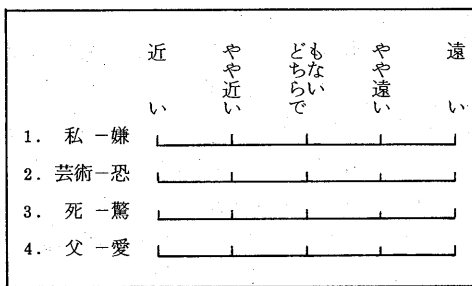 近い
やや近い
どちらで
もない
やや遠い
遠い
1. 私 ー嫌
2. 芸術ー恐
3. 死 ー驚
4. 父 ー愛